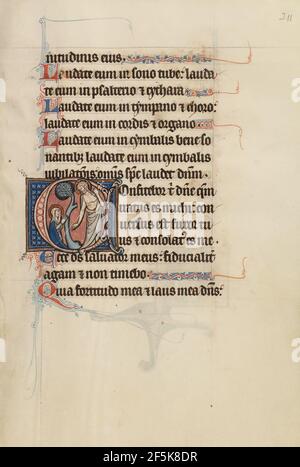 211
titudinis eius.
Laudate eum in sono tube: lauda
te eum in psalterio & cythara.
Laudate eum in tympano & choro:
laudate eum in cordis & organo.
Laudate eum in cymbalis bene so
nantibz laudate eum in cymbalis
iubilatiois omis sps laudet dnm.
Confitebor t dne qm
iratus es michi: con
uersus est furor tu
us & consolat es me.
Ecce ds saluator meus: fiducialit
agam & non timebo.
Quia fortitudo mea & laus mea dns:
alamy
Image ID: 2F5K8DR
www.alamy.com